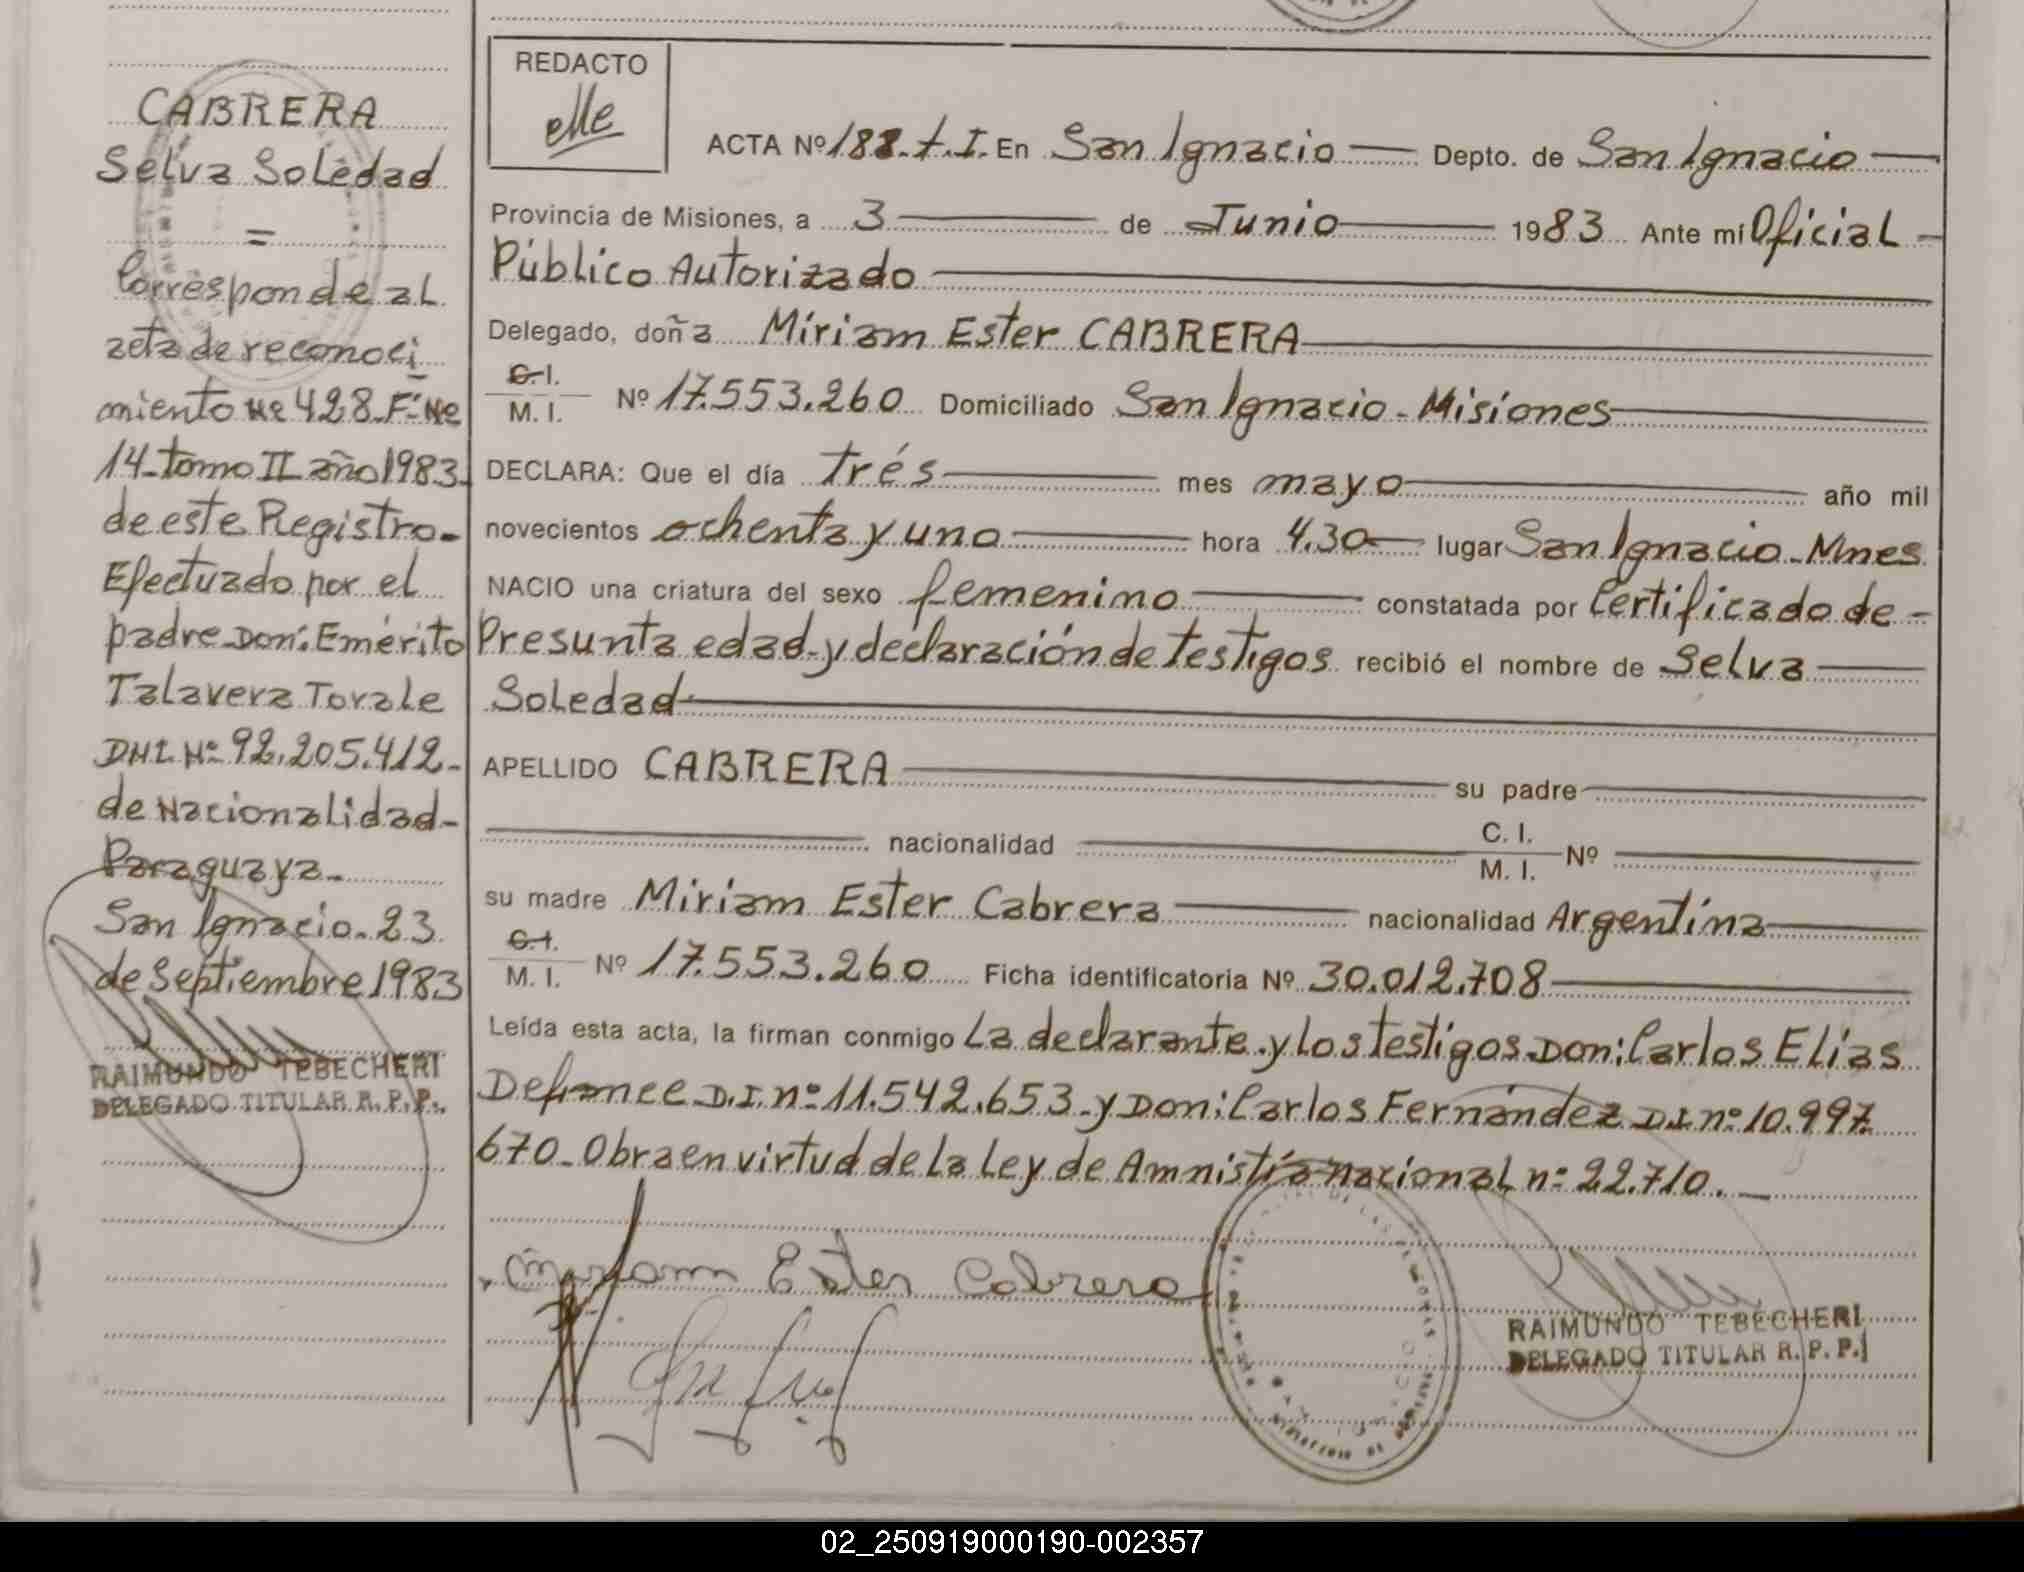 CABRERA
Selva Soledad
=
Corresponde al
acta de reconoci
miento Nº 428-Fº Nº
14-tomo II año 1983-
de este Registro-
Efectuado por el
padre Don: Emérito
Talavera Torale
DNI Nº 92.205.412-
de Nacionalidad-
Paraguaya-
San Ignacio-23
de Septiembre 1983
RAIMUNDO TEBECHERI
DELEGADO TITULAR R. P. P.
REDACTO
elle
ACTA Nº 188-t.I. En San Ignacio Depto. de San Ignacio
Provincia de Misiones, a 3 de Junio 1983 Ante mí Oficial -
Público Autorizado
Delegado, doña Míriam Ester CABRERA
C. I.
M. I. Nº 17.553.260 Domiciliado San Ignacio-Misiones
DECLARA: Que el día trés mes mayo año mil
novecientos ochenta y uno hora 4.30 lugar San Ignacio-Mnes
NACIO una criatura del sexo femenino constatada por Certificado de -
Presunta edad-y declaración de testigos recibió el nombre de Selva
Soledad
APELLIDO CABRERA su padre
nacionalidad C. I.
M. I. Nº
su madre Miriam Ester Cabrera nacionalidad Argentina
C. I.
M. I. Nº 17.553.260 Ficha identificatoria Nº 30.012.708
Leída esta acta, la firman conmigo La declarante y los testigos Don: Carlos Elías
D.I. nº 11.542.653-y Don: Carlos Fernández D.I. nº 10.997.
670-Obra en virtud de la Ley de Amnistía nacional nº 22.710.-
Myriam Ester Cabrera
RAIMUNDO TEBECHERI
DELEGADO TITULAR R. P. P.
02_250919000190-002357